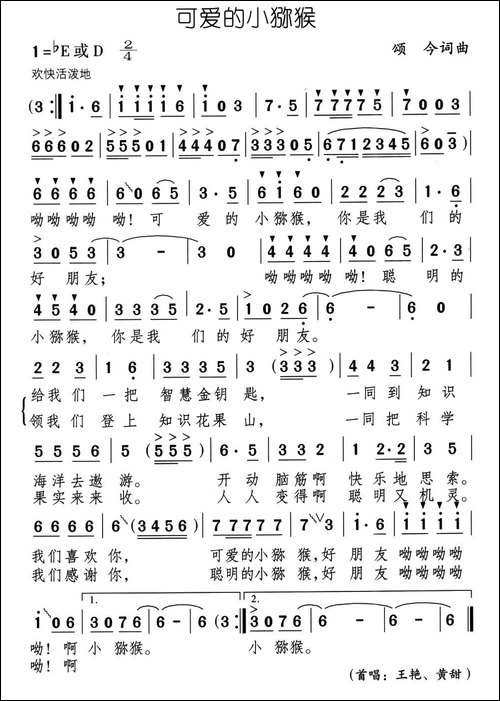 可爱的小猕猴
1=♭E或D 2/4
颂 今词曲
欢快活泼地
(3 :‖ i · 6 | i i i i 6 | i 0 0 3 | 7 · 5 | 7 7 7 7 5 | 7 0 0 3 |
6 6 6 0 2 | 5 5 5 0 1 | 4 4 4 0 7 | 3 3 3 0 5 | 6 7 1 2 3 4 5 | 6 0 3 ) |
6 6 6 6 | 6 0 6 5 | 3 · 5 | 6 i 6 0 | 2 2 2 3 | 1 · 6 |
呦呦呦呦 呦! 可 爱 的 小猕猴, 你是我 们 的
3 0 5 3 | 3 - | 3 0 | 4 4 4 4 | 4 0 6 5 | 2 · 3 |
好 朋友; 呦呦呦呦 呦! 聪 明 的
4 5 4 0 | 3 3 3 5 | 2 · 5 | 1 0 2 6 | 6 - | 6 0 |
小猕猴, 你是我 们 的 好 朋友。
2 2 3 | 1 6 | 3 3 3 5 | 3 (3 3 3) | 4 4 3 | 2 1 |
给我们 一把 智慧金钥 匙, 一同到 知识
领我们 登上 知识花果 山, 一同把 科学
5 5 5 6 | 5 (5 5 5) | 6 · 5 | 3 3 2 | 1 2 · 2 | 3 2 |
海洋去遨 游。 开 动 脑筋啊 快乐地 思索。
果实来来 收。 人 人 变得啊 聪明又 机灵。
6 6 6 6 | 6 (3 4 5 6) | 7 7 7 7 7 | 7 3 | i · 6 | i i i i |
我们喜欢 你, 可爱的小猕 猴,好 朋 友 呦呦呦呦
我们感谢 你, 聪明的小猕 猴,好 朋 友 呦呦呦呦
i 0 6 | 1. 3 0 7 6 | 6 - | 6 - (3 :‖ 2. 3 0 7 6 | 6 - | 6 - ‖
呦! 啊 小 猕猴。 小 猕猴。
呦! 啊
(首唱:王艳、黄甜)